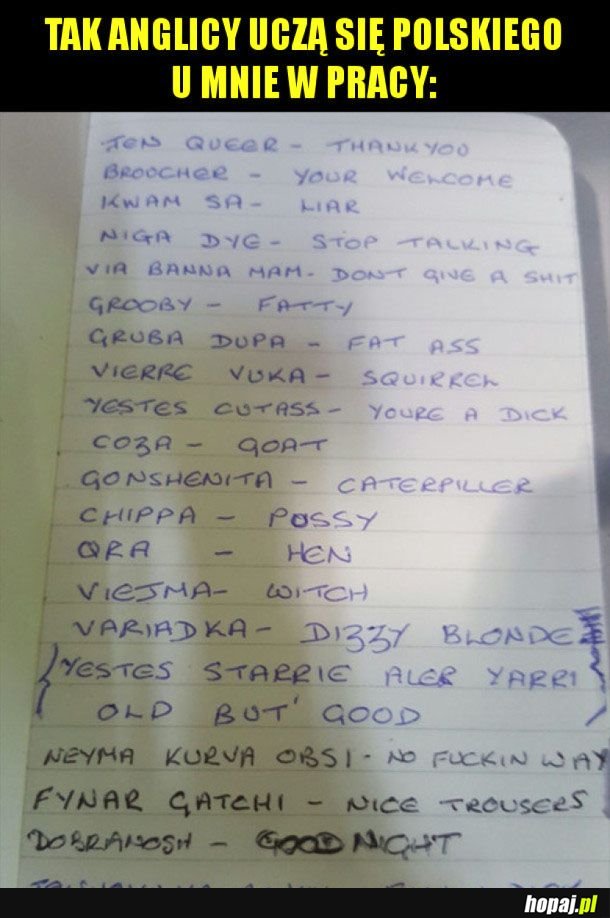 TAK ANGLICY UCZĄ SIĘ POLSKIEGO
U MNIE W PRACY:
JEN QUEER - THANKYOU
BROOCHER - YOUR WELCOME
KWAM SA - LIAR
NIGA DYE - STOP TALKING
VIA BANNA MAM - DONT GIVE A SHIT
GROOBY - FATTY
GRUBA DUPA - FAT ASS
VIERRE VUKA - SQUIRREL
YESTES CUTASS - YOURE A DICK
COZA - GOAT
GONSHENITA - CATERPILLER
CHIPPA - PUSSY
QRA - HEN
VIEJMA - WITCH
VARIADKA - DIZZY BLONDE
YESTES STARRIE ALER YARRI
OLD BUT GOOD
NEYMA KURVA OBSI - NO FUCKIN WAY
FYNAR GATCHI - NICE TROUSERS
DOBRANOSH - GOOD NIGHT
hopaj.pl